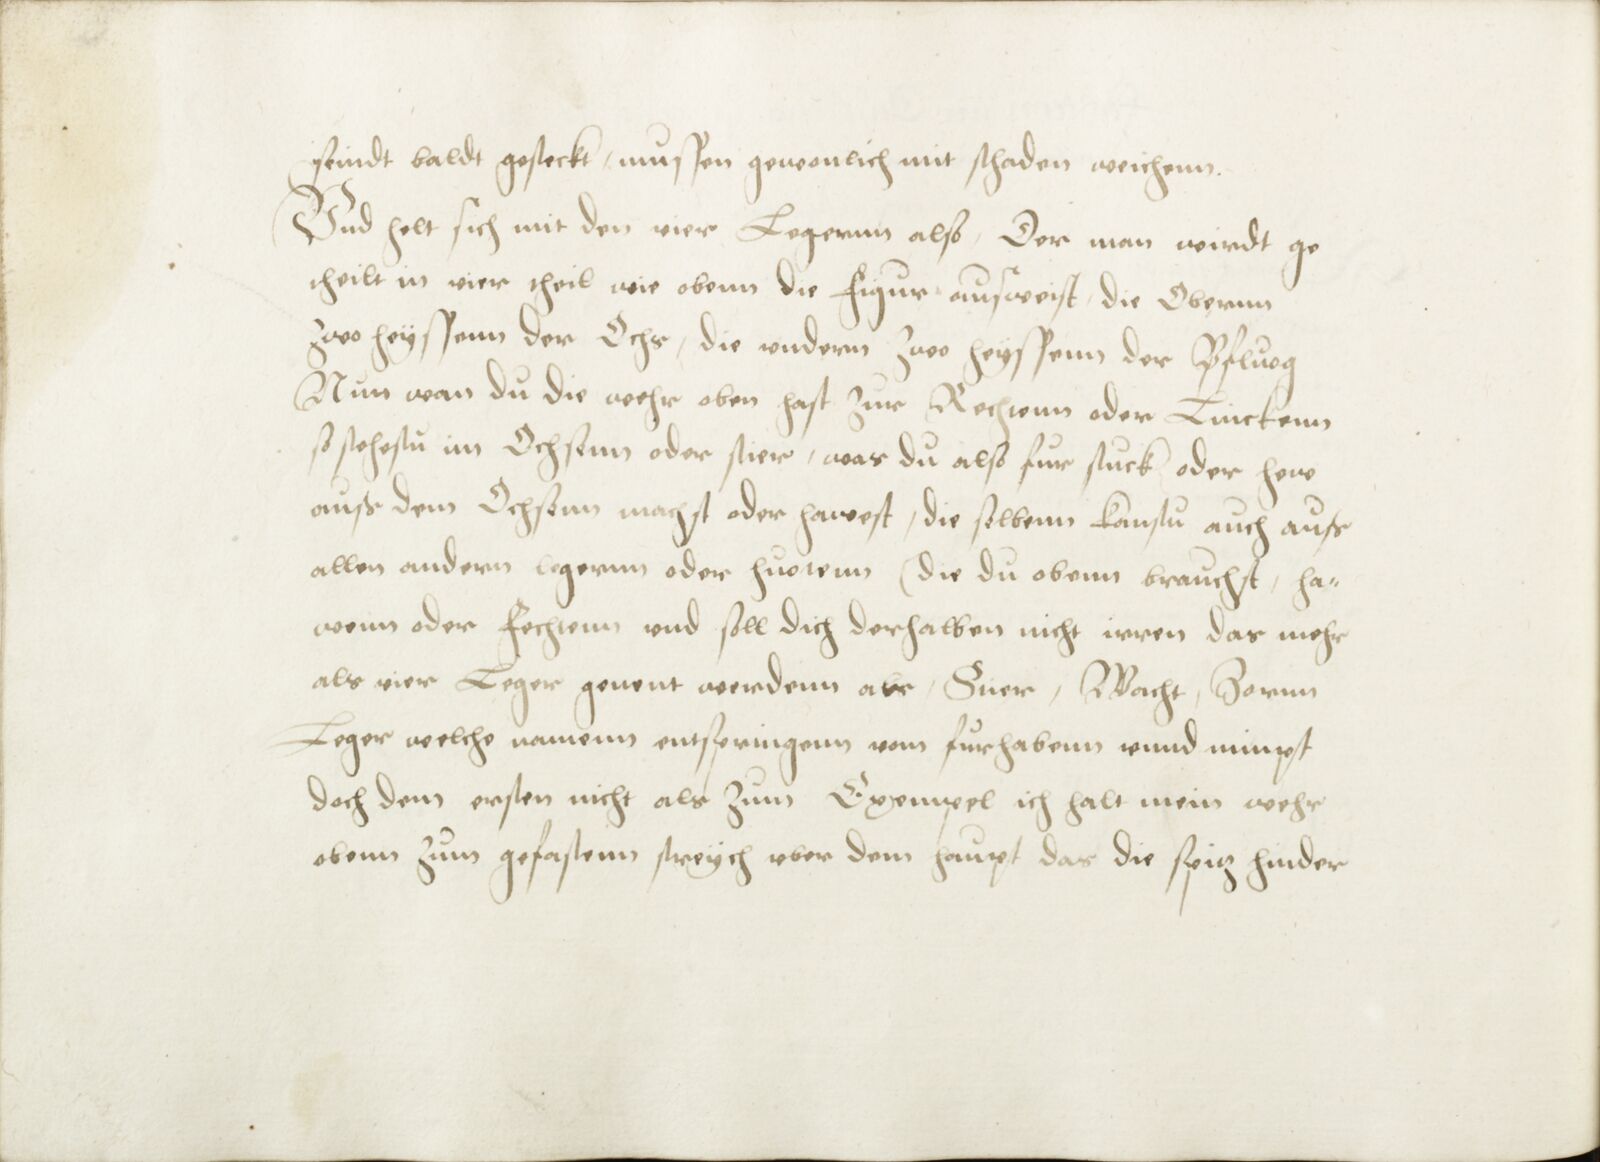 seindt baldt gesteckt, mussen gewonlich mit schaden weichenn.
Vnd helt sich mit den vier Legernn also, Der man wirdt ge
theilt in vier theil wie obenn die Figur ausweist, die Obernn
zwo heyssenn der Ochs, die vndern zwo heyssenn der Pfluog
Nun wan du die wehr oben hast zur Rechtenn oder Linckenn
so stehestu im Ochsenn oder stier, was du also fur stuck oder hew
auss dem Ochsenn machst oder hawest, die selbenn kanstu auch auss
allen andern legernn oder huotenn (die du obenn brauchst, ha=
wenn oder Fechtenn vnd soll dich derhalben nicht irren das mehr
als vier Leger genent werdenn als, Stier, Wacht, Zornn
Leger welche namenn entspringenn vom furhabenn vnnd nimpt
doch dem ersten nicht als zum Exempel ich halt mein wehr
obenn zum gefastenn streych vber dem haupt das die spitz hinder